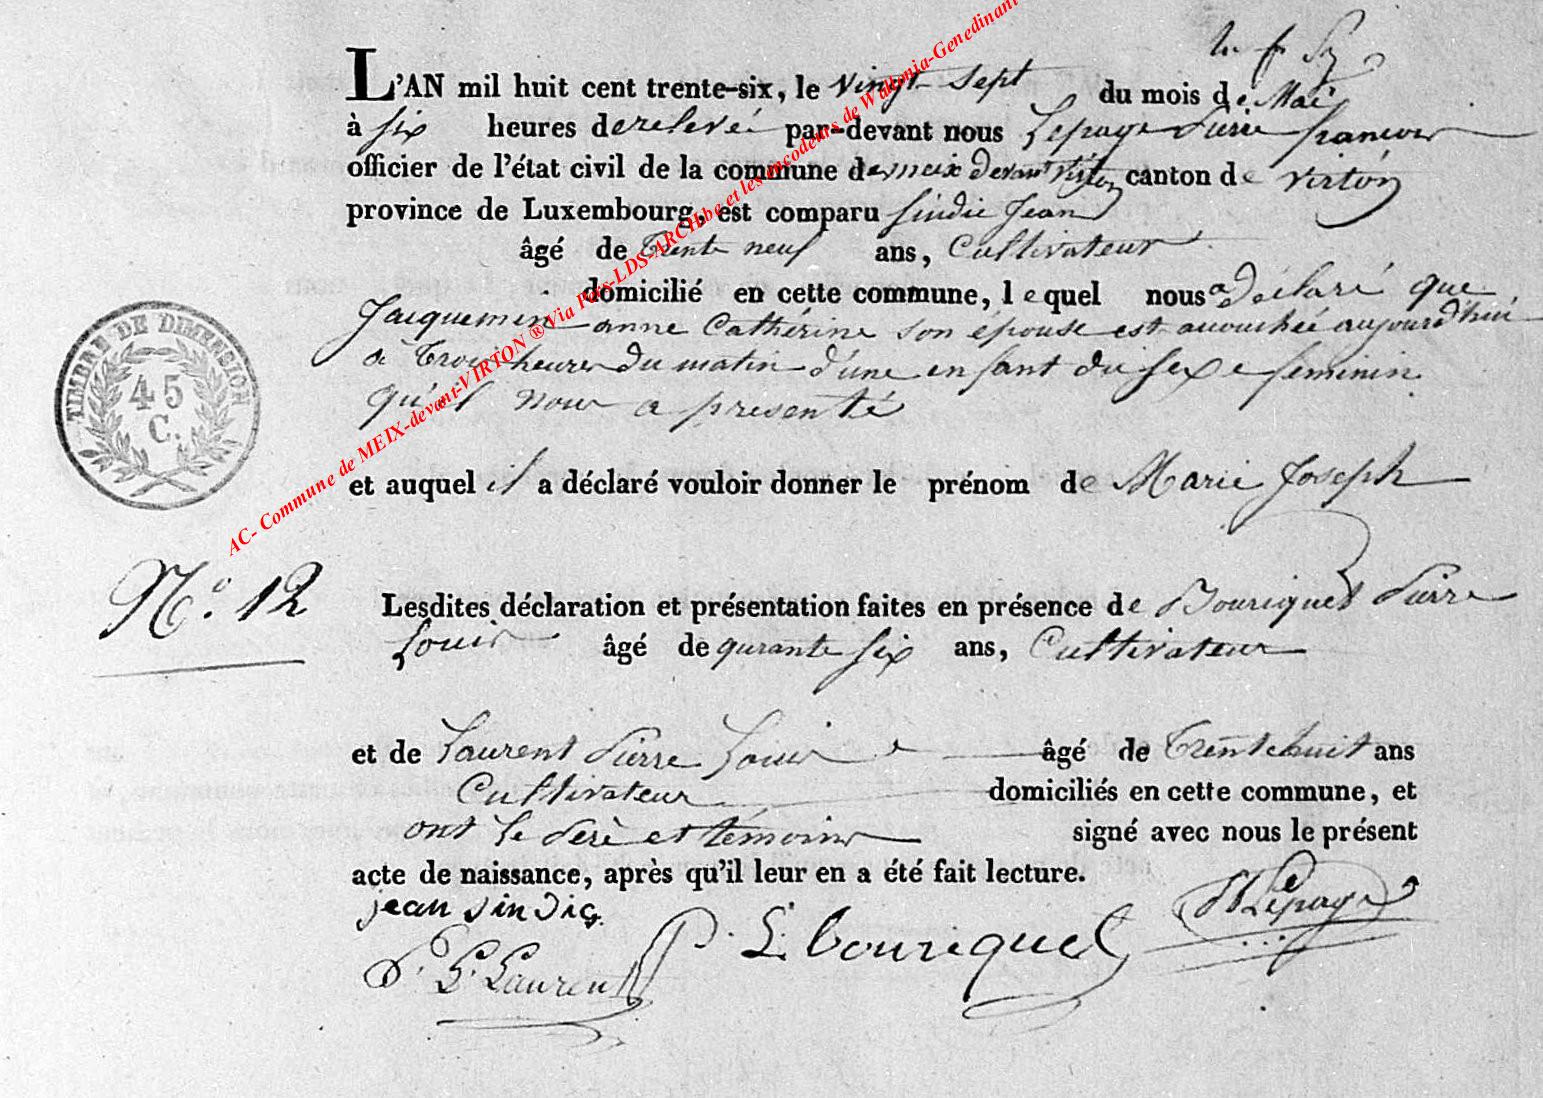 L'AN mil huit cent trente-six, le vingt-sept du mois de Mai
à six heures de relevée par-devant nous Lepage Pierre francois
officier de l'état civil de la commune de meix devant virton canton de virton
province de Luxembourg, est comparu Sindic Jean
âgé de Trente neuf ans, Cultivateur
domicilié en cette commune, lequel nous a déclaré que
Jacquemin anne Cathérine son épouse est acouchée aujourd'hui
a Trois heures du matin d'une enfant du sexe feminin
qu'il nous a presenté
et auquel il a déclaré vouloir donner le prénom de Marie Joseph
TIMBRE DE DIMENSION
45
C.
N.° 12
Lesdites déclaration et présentation faites en présence de Bouriquet Pierre
Louis âgé de qurante six ans, Cultivateur
et de Laurent Pierre Louis âgé de Trente huit ans
Cultivateur domiciliés en cette commune, et
ont le Perè et témoins signé avec nous le présent
acte de naissance, après qu'il leur en a été fait lecture.
jean Sindic
P. L. Laurent
P. L. bouriquet
Lepage
AC- Commune de MEIX-devant-VIRTON ® Via Pars-LDS-ARCH.be et les encodeurs de Wallonia-Genedinant